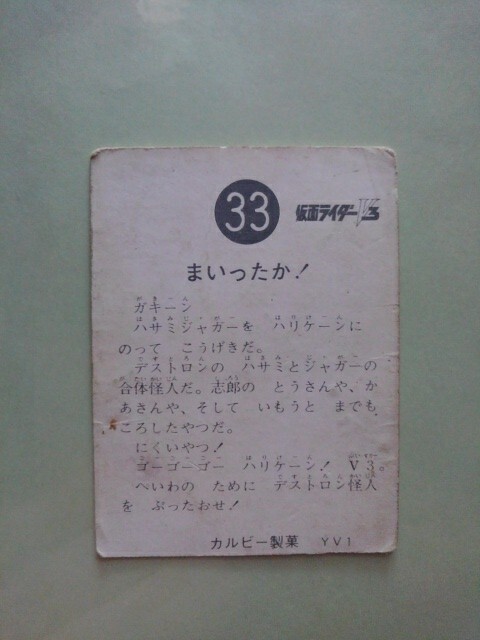 33 仮面ライダーV3
まいったか！
ガキーン
ハサミジャガーを ハリケーンに
のって こうげきだ。
デストロンの ハサミとジャガーの
合体怪人だ。志郎の とうさんや、か
あさんや、そして いもうと までも
ころしたやつだ。
にくいやつ！
ゴーゴーゴー ハリケーン！ V3。
へいわの ために デストロン怪人
を ぶったおせ！
カルビー製菓 YV1